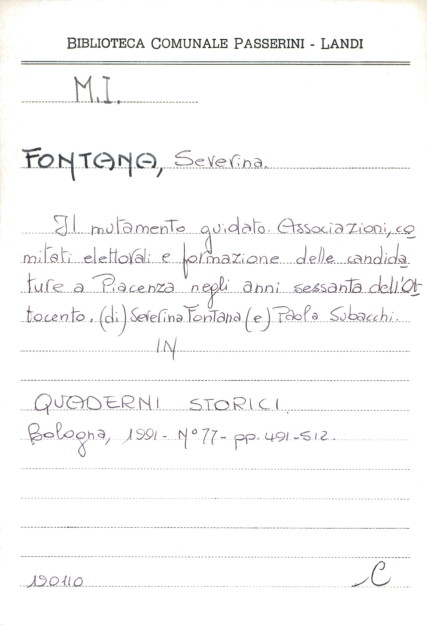 BIBLIOTECA COMUNALE PASSERINI - LANDI
M.I.
FONTANA, Severina.
Il mutamento guidato. Associazioni, co
mitati elettorali e formazione delle candida
ture a Piacenza negli anni sessanta dell'Ot
tocento. (di) Severina Fontana (e) Paola Subacchi.
IN
QUADERNI STORICI.
Bologna, 1991 - N° 77 - pp. 491-512.
190110
C